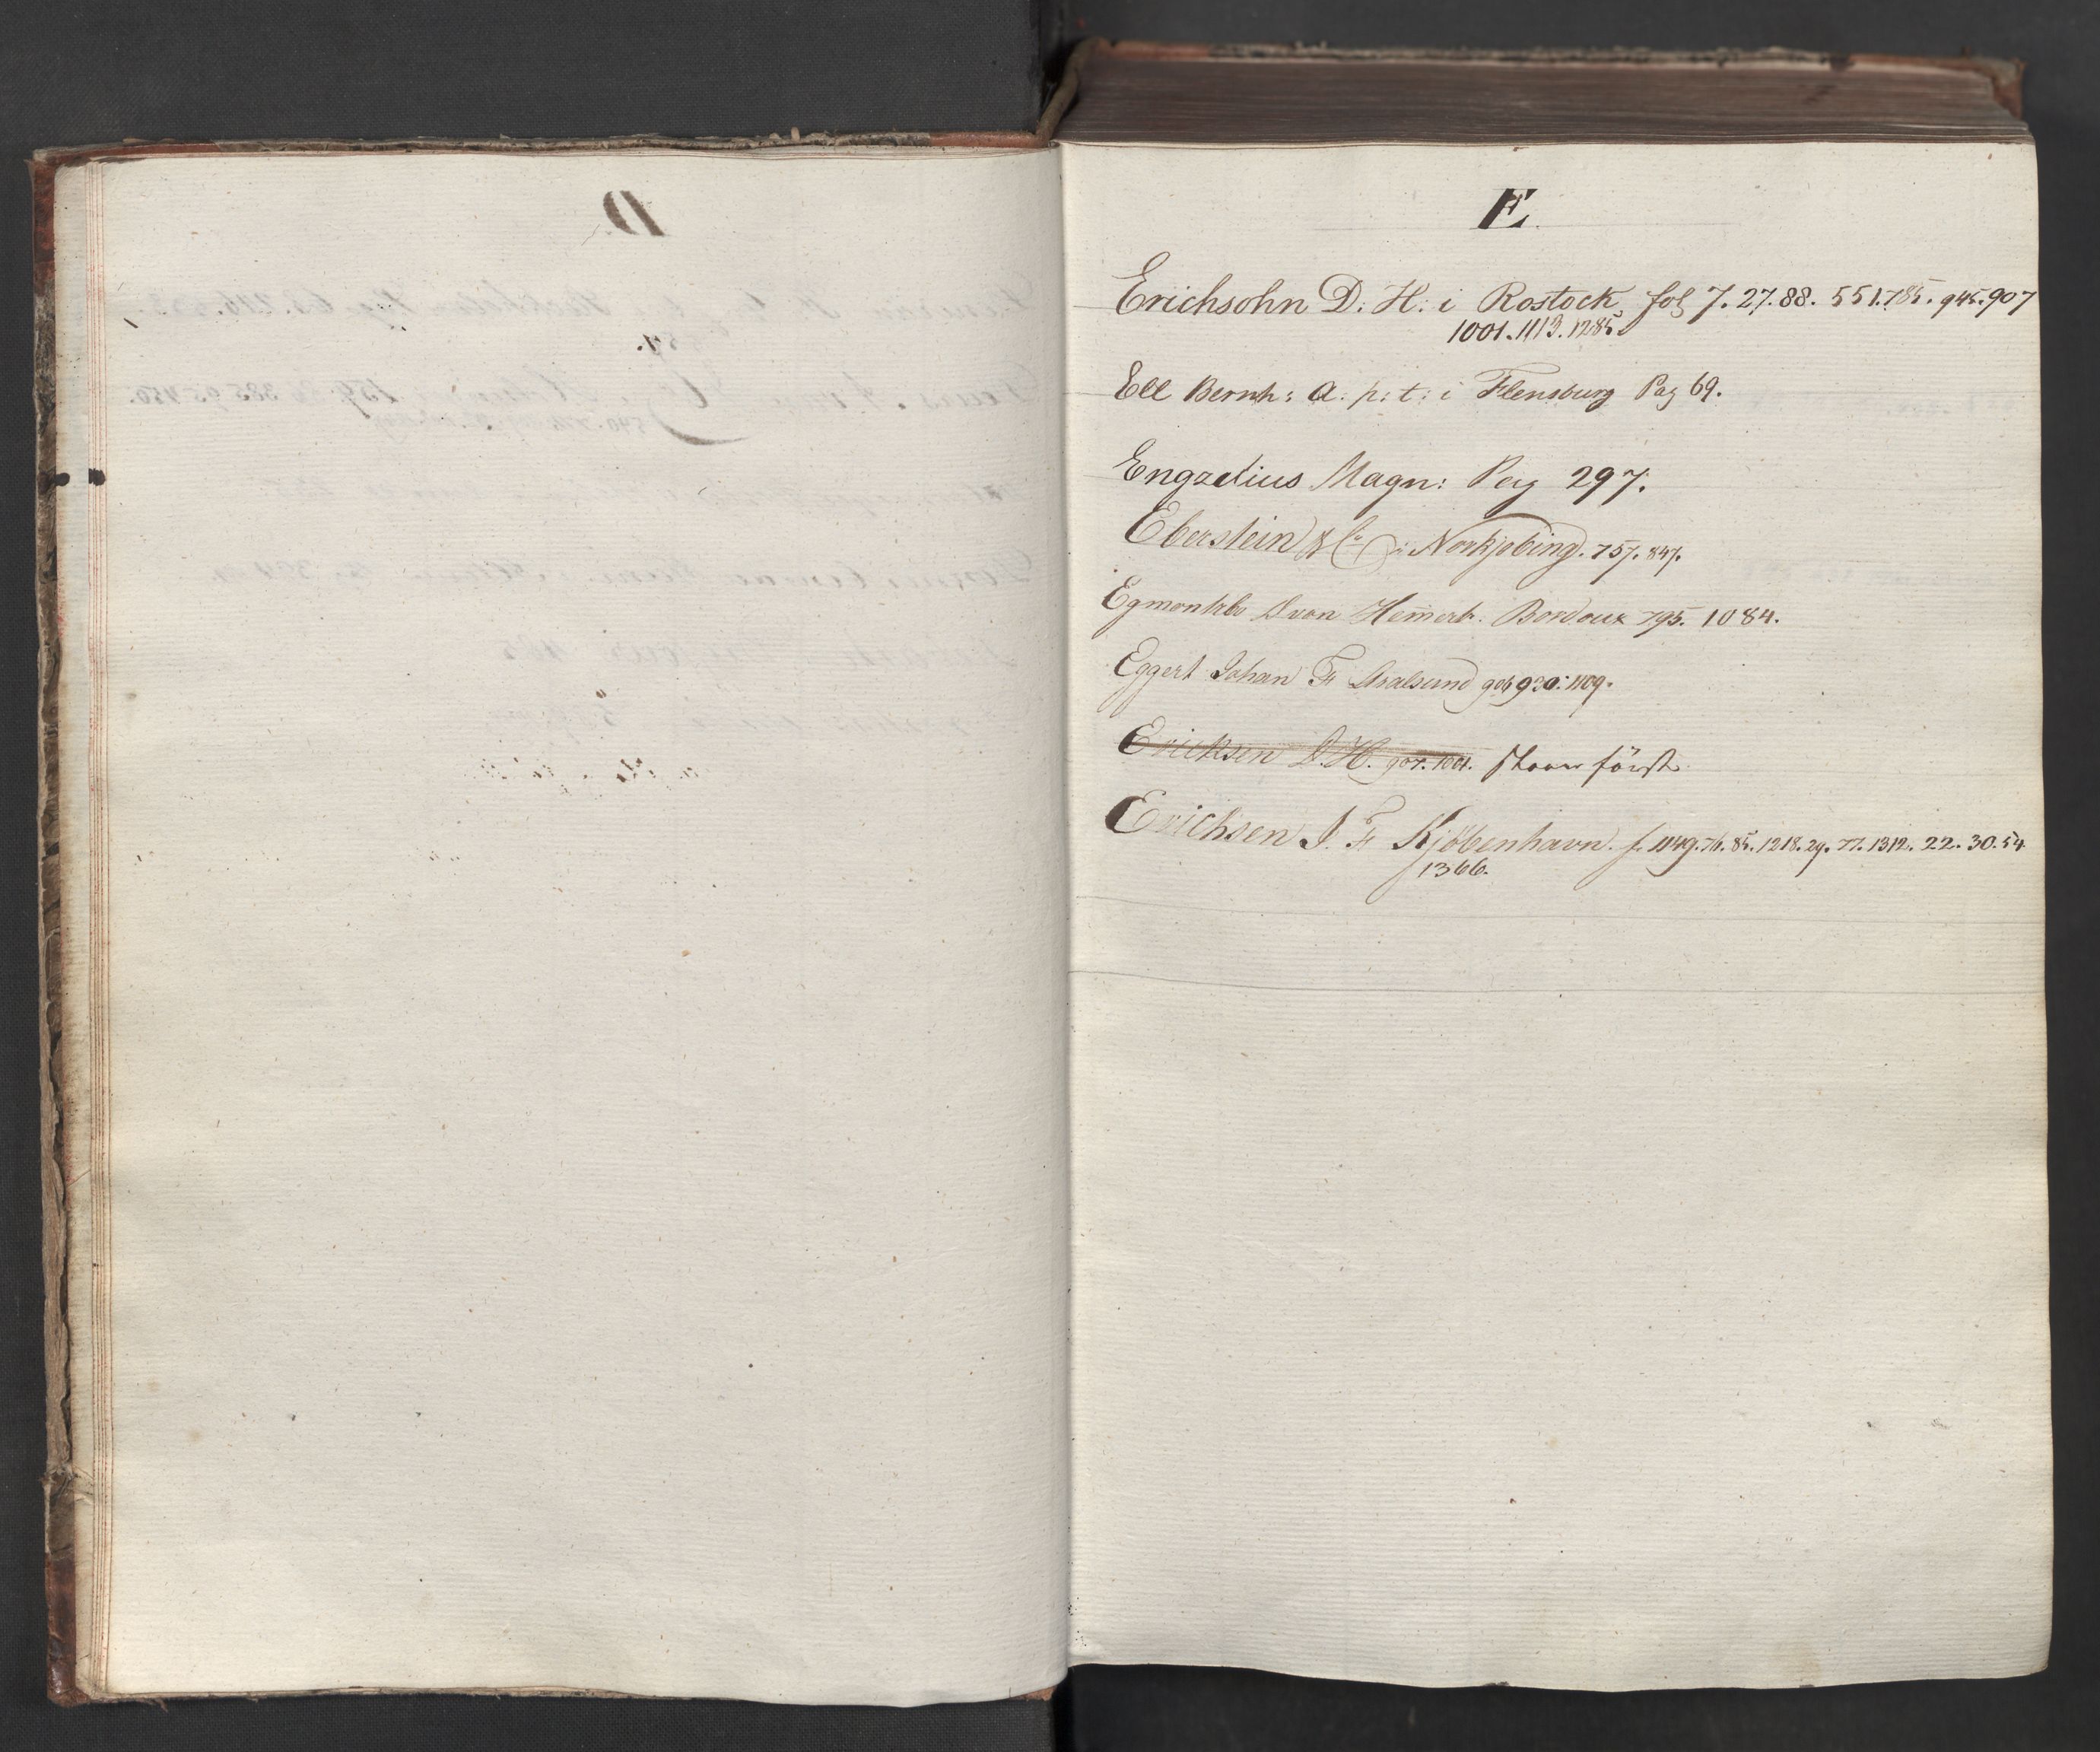 E.
Erichsohn D: H: i Rostock fol 7. 27. 88. 551. 785. 945. 907
1001. 1113. 1285
Ell Bernh: a: p: t: i Flensburg Pag 69.
Engzelius Magn: Pag 297.
Eberstein & Co i Norkjøbing. 757. 847.
Bordoux 795. 1084.
Eggert Johan F Stralsund 930. 1109.
Ericksen D. H. 907. 1001. staaer först
Erichsen J. F Kjöbenhavn. f. 1149. 76. 85. 1218. 29. 77. 1312. 22. 30. 54
1366.